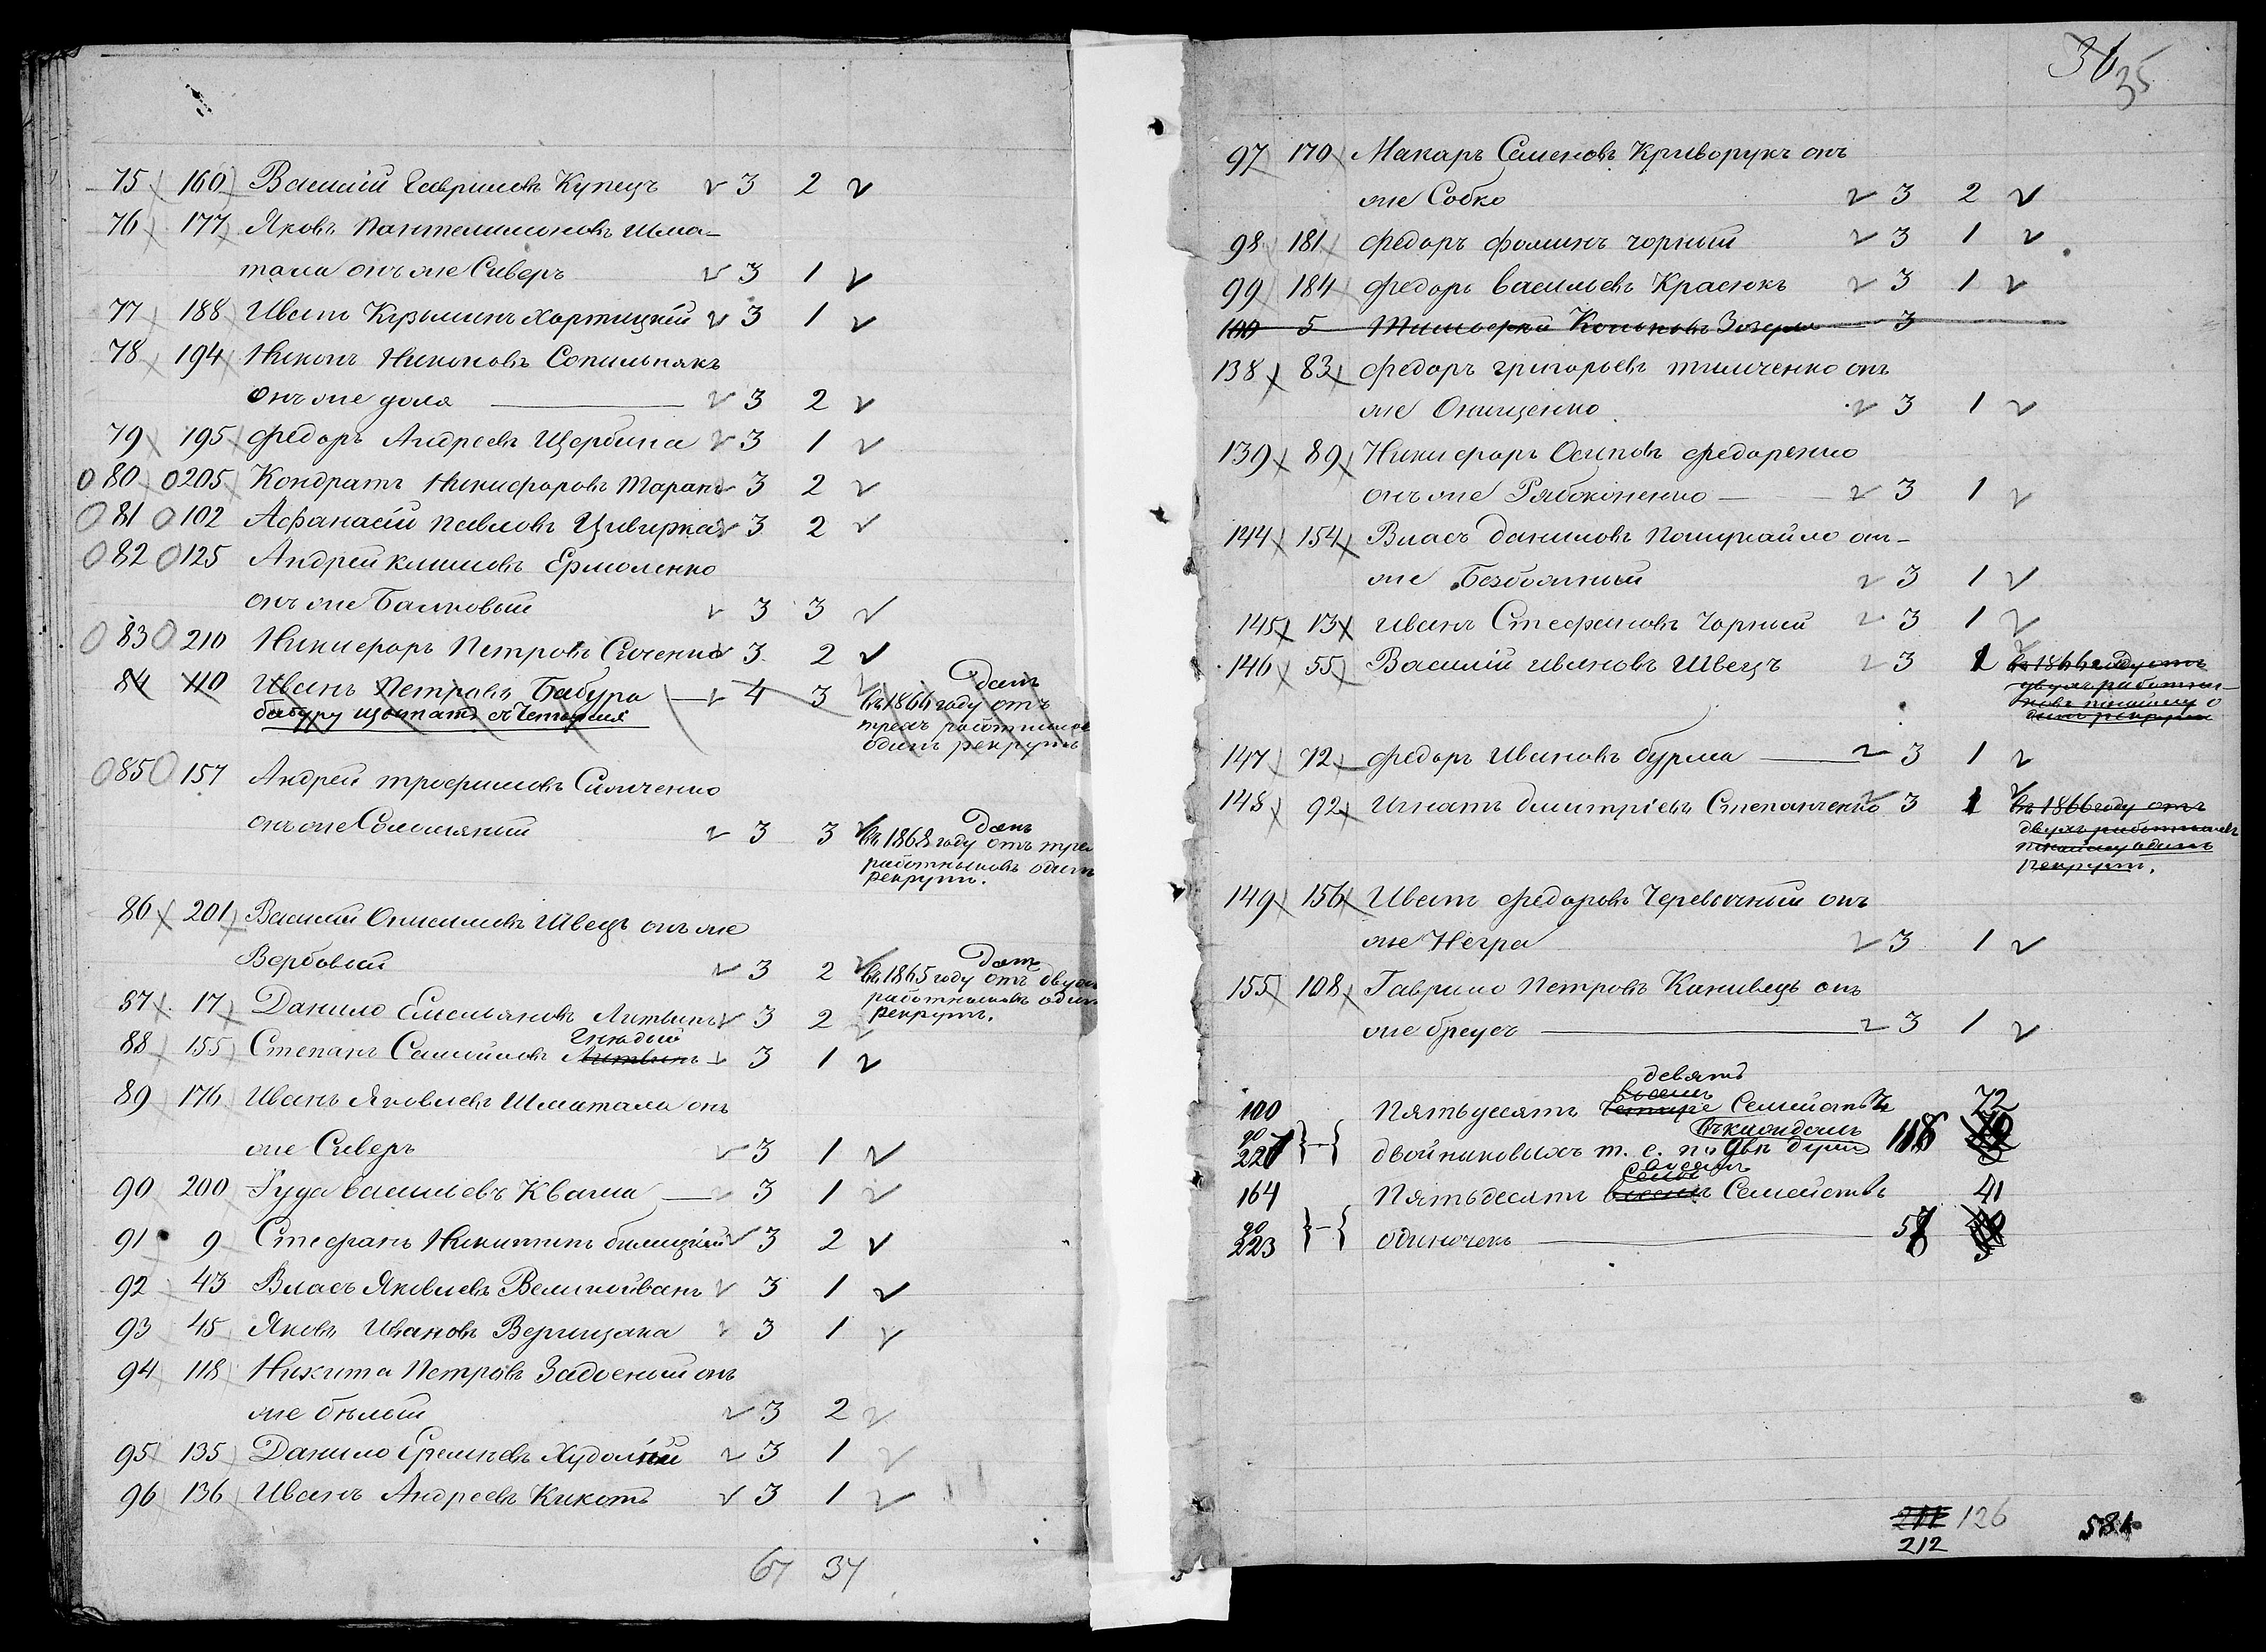 75 160 Василій Гавриловъ Купецъ 3 2
76 177 Яковъ Пантелимоновъ Шма-
тала онъ же Сиверъ 3 1
77 188 Иванъ Кузьминъ Хортицкій 3 1
78 194 Никонъ Никоновъ Сопильнякъ
онъ же доля 3 2
79 195 Федоръ Андреевъ Щербина 3 1
0 80 0 205 Кондратъ Никифоровъ Таранъ 3 2
0 81 0 102 Афанасій Павловъ Цивирка 3 2
0 82 0 125 Андрей Климовъ Ермоленко
онъ же Балковый 3 3
0 83 0 210 Никифоръ Петровъ Сиченко 3 2
84 110 Иванъ Петровъ Бабура 4 3 Данъ
бабуру въ 1866 году отъ
трехъ работниковъ
одинъ рекрутъ
0 85 0 157 Андрей Трофимовъ Симченко
онъ же Соломяный 3 3 Данъ
въ 1868 году отъ трех
работныковъ одинъ
рекрутъ.
86 201 Василій Онисимовъ Швецъ онъ же
Вербовый 3 2 Данъ
въ 1865 году отъ двухъ
работныковъ один
рекрутъ.
87 17 Данило Емельяновъ Литвинъ 3 2
Гнидый
88 155 Степанъ Самойловъ Литвинъ 3 1
89 176 Иванъ Яковлевъ Шматала онъ
же Сиверъ 3 1
90 200 Гуда Васильевъ Кваша 3 1
91 9 Стефанъ Никитинъ билицкій 3 2
92 43 Власъ Яковлевъ Великоиванъ 3 1
93 45 Яковъ Ивановъ Верещака 3 1
94 118 Никита Петровъ Задоеный онъ
же бѣлый 3 2
95 135 Данило Еремѣевъ Худолій 3 1
96 136 Иванъ Андреевъ Кикоть 3 1
67 37
36 35
97 170 Макаръ Семеновъ Криворукъ онъ
же Собко 3 2
98 181 Федоръ Фоминъ Чорный 3 1
99 184 Федоръ Васильевъ Красюкъ 3 1
100 5 3
138 83 Федоръ Григорьевъ Тимченко онъ
же Онищенко 3 1
139 89 Никифоръ Осиповъ Федоренко
онъ же Рябоконенко 3 1
144 154 Власъ Даниловъ онъ
же Безбожный 3 1
145 131 Иванъ Стефановъ Чорный 3 1
146 55 Василій Ивановъ Швецъ 3 1 въ 1866 году отъ
двухъ работни-
ковъ
одинъ рекрутъ
147 72 Федоръ Ивановъ бурма 3 1
148 92 Игнатъ Дмитріевъ Степанченко 3 1 въ 1866 году отъ
двухъ работныковъ
одинъ
рекрутъ.
149 156 Иванъ Федоровъ Черевычный онъ
же Негра 3 1
155 108 Гаврило Петровъ Канивецъ онъ
же бреусъ 3 1
девять
восемь
100 Пятьдесятъ четыре Семействъ 72
въ каждомъ
до 221 двойниковыхъ т. е. по двѣ души 118
восемь
семь
164 Пятьдесятъ восемь Семействъ 41
до 223 одиночекъ 58
211 126 581
212